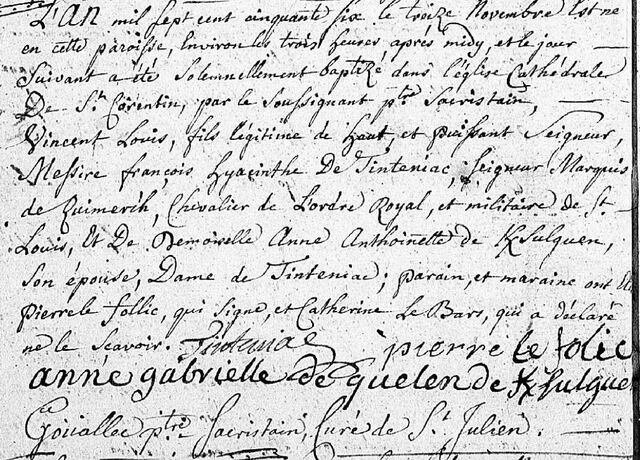 L'An mil sept cent cinquante six le treize Novembre Est né
en cette paroisse, Environ les trois heures après midy, et le jour
Suivant a été Solemnellement baptizé dans l'église Cathédrale
De St. Corentin, par le Soussignant ptre Sacristain,
Vincent Louis, fils légitime de haut, et Puissant Seigneur,
Messire françois, hyacinthe De Tinteniac, Seigneur Marquis
de Quimerch, Chevalier de Lordre Royal, et militaire de St.
Louis, Et De Demoiselle Anne Anthoinette de Kersulguen,
Son épouse, Dame de Tinteniac; parain, et maraine ont Eté
Pierre le follic, qui Signe, et Catherine Le Bars, qui a déclaré
ne le Scavoir. Tinteniac pierre le folic
anne gabrielle de quelen de Kersulgue
Gouallec ptre Sacristain, Curé de St. Julien.